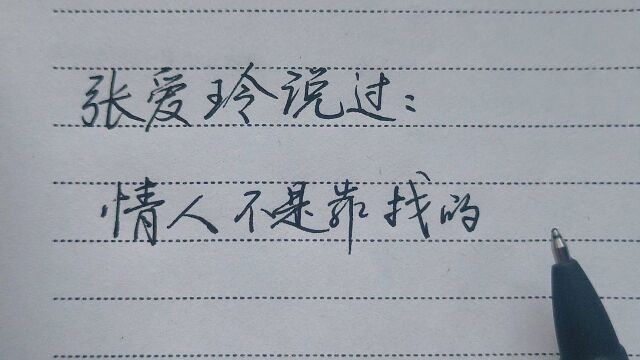 张爱玲说过：
情人不是靠找的